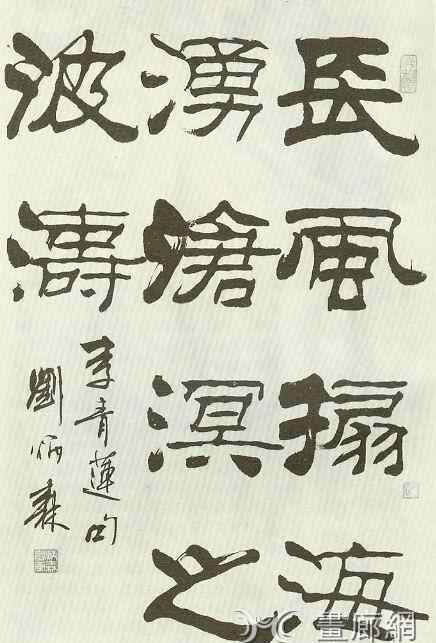 長風搧海
湧滄溟之
波濤
李青蓮句
劉炳森
畫廊網